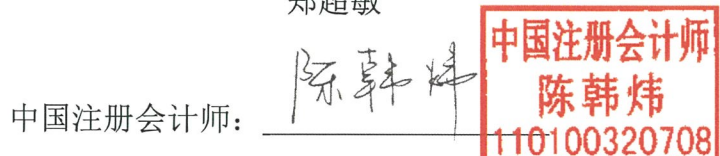 郑超敏
中国注册会计师：陈韩炜
中国注册会计师
陈韩炜
110100320708